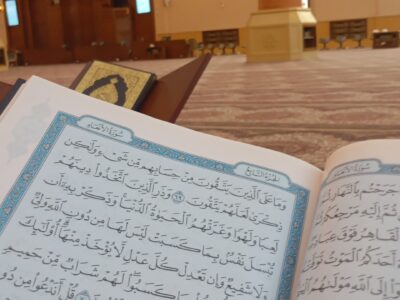 سُورَةُ الأَنْعَامِ
جَرَحْتُم بِٱلنَّهَارِ
ثُمَّ إِلَيْهِ مَرْجِعُكُمْ
ٱلْقَاهِرُ فَوْقَ عِبَادِهِ
أَحَدَكُمُ ٱلْمَوْتُ
إِلَى ٱللَّهِ مَوْلَىٰهُمُ
الجُزْءُ السَّابِعُ
سُورَةُ الأَنْعَامِ
وَمَا عَلَى ٱلَّذِينَ يَتَّقُونَ مِنْ حِسَابِهِم مِّن شَىْءٍ وَلَٰكِن
ذِكْرَىٰ لَعَلَّهُمْ يَتَّقُونَ ٦٩ وَذَرِ ٱلَّذِينَ ٱتَّخَذُوا۟ دِينَهُمْ
لَعِبًا وَلَهْوًا وَغَرَّتْهُمُ ٱلْحَيَوٰةُ ٱلدُّنْيَا وَذَكِّرْ بِهِۦٓ أَن
تُبْسَلَ نَفْسٌۢ بِمَا كَسَبَتْ لَيْسَ لَهَا مِن دُونِ ٱللَّهِ وَلِىٌّ
وَلَا شَفِيعٌ وَإِن تَعْدِلْ كُلَّ عَدْلٍ لَّا يُؤْخَذْ مِنْهَآ أُو۟لَٰٓئِكَ
كَسَبُوا۟ لَهُمْ شَرَابٌ مِّنْ حَمِيمٍ
قُلْ أَنَدْعُوا۟ مِن دُو